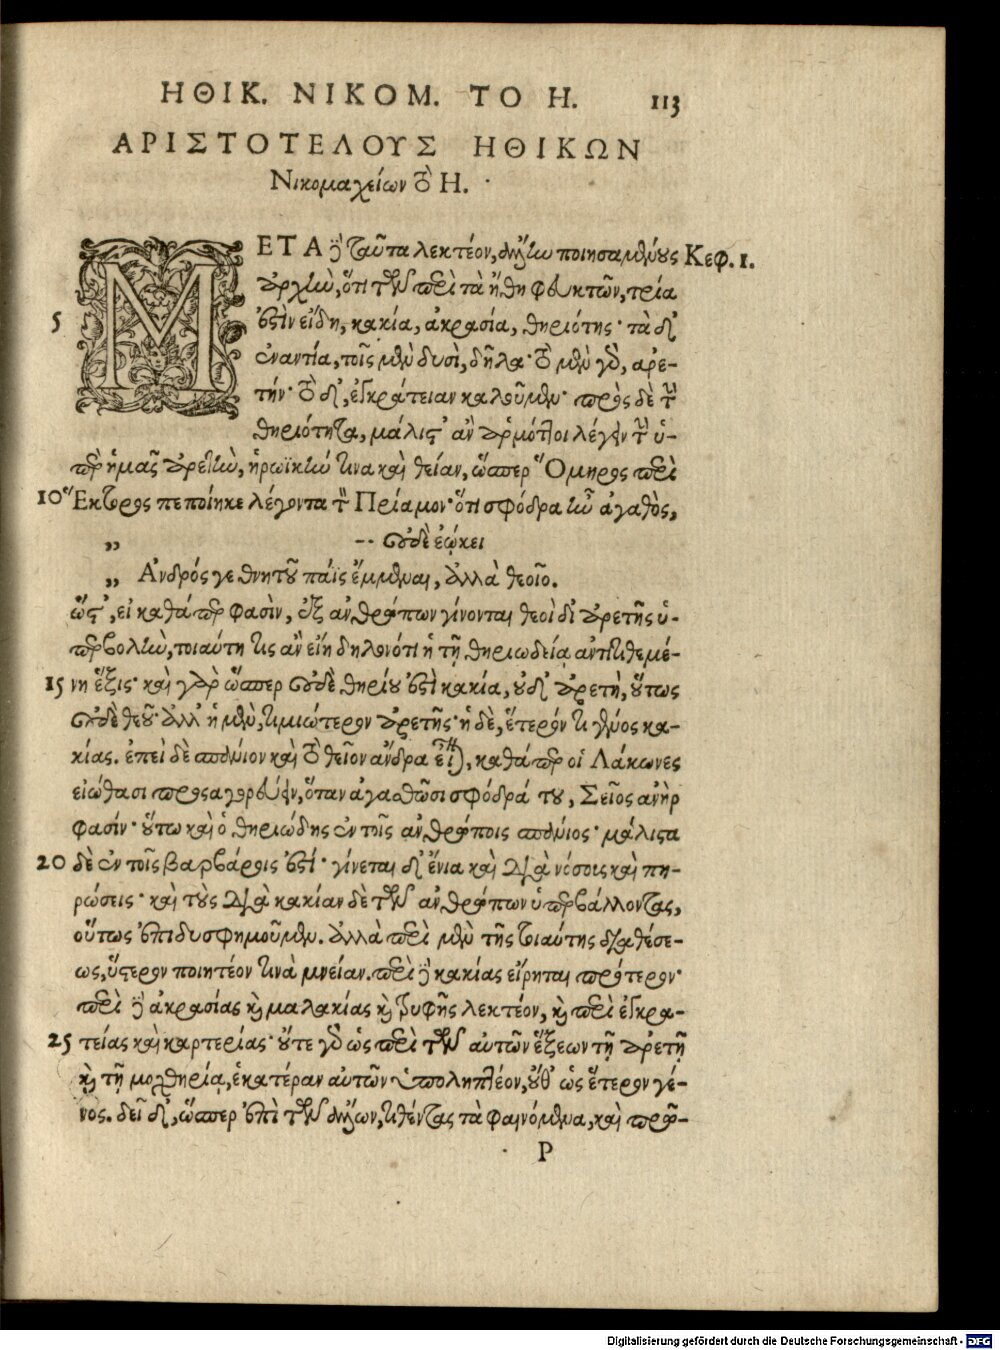 ΗΘΙΚ. ΝΙΚΟΜ. ΤΟ Η. 113
ΑΡΙΣΤΟΤΕΛΟΥΣ ΗΘΙΚΩΝ
Νικομαχείων τὸ Η.
ΜΕΤΑ δὲ ταῦτα λεκτέον, ἄλλην ποιησαμένους Κεφ. 1.
ἀρχὴν, ὅτι τῶν περὶ τὰ ἤθη φευκτῶν, τρία
5 ἐστὶν εἴδη, κακία, ἀκρασία, θηριότης· τὰ δ'
ἐναντία, τοῖς μὲν δυσὶ, δῆλα· τὸ μὲν γὰρ, ἀρε-
τήν· τὸ δ', ἐγκράτειαν καλοῦμεν· πρὸς δὲ τὴν
θηριότητα, μάλιστ' ἂν ἁρμόττοι λέγειν τὴν ὑ-
πὲρ ἡμᾶς ἀρετὴν, ἡρωϊκήν τινα καὶ θείαν, ὥσπερ Ὅμηρος περὶ
10 Ἕκτορος πεποίηκε λέγοντα τὸν Πρίαμον· ὅτι σφόδρα ἦν ἀγαθὸς,
„ -- οὐδὲ ἐῴκει
„ Ἀνδρός γε θνητοῦ πάϊς ἔμμεναι, ἀλλὰ θεοῖο.
ὥστ', εἰ καθάπερ φασὶν, ἐξ ἀνθρώπων γίνονται θεοὶ δι' ἀρετῆς ὑ-
περβολὴν, τοιαύτη τις ἂν εἴη δηλονότι ἡ τῇ θηριωδείᾳ ἀντιτιθεμέ-
15 νη ἕξις· καὶ γὰρ ὥσπερ οὐδὲ θηρίου ἐστὶ κακία, οὐδ' ἀρετὴ, οὕτως
οὐδὲ θεοῦ· ἀλλ' ἡ μὲν, τιμιώτερον ἀρετῆς· ἡ δὲ, ἕτερόν τι γένος κα-
κίας. ἐπεὶ δὲ σπάνιον καὶ τὸ θεῖον ἄνδρα εἶναι, καθάπερ οἱ Λάκωνες
εἰώθασι προσαγορεύειν, ὅταν ἀγασθῶσι σφόδρά του, Σεῖος ἀνὴρ
φασίν· οὕτω καὶ ὁ θηριώδης ἐν τοῖς ἀνθρώποις σπάνιος· μάλιστα
20 δὲ ἐν τοῖς βαρβάροις ἐστί· γίνεται δ' ἔνια καὶ διὰ νόσους καὶ πη-
ρώσεις· καὶ τοὺς διὰ κακίαν δὲ τῶν ἀνθρώπων ὑπερβάλλοντας,
οὕτως ἐπιδυσφημοῦμεν. ἀλλὰ περὶ μὲν τῆς τοιαύτης διαθέσε-
ως, ὕστερον ποιητέον τινὰ μνείαν. περὶ δὲ κακίας εἴρηται πρότερον·
περὶ δὲ ἀκρασίας καὶ μαλακίας καὶ τρυφῆς λεκτέον, καὶ περὶ ἐγκρα-
25 τείας καὶ καρτερίας· οὔτε γὰρ ὡς περὶ τῶν αὐτῶν ἕξεων τῇ ἀρετῇ
καὶ τῇ μοχθηρίᾳ, ἑκατέραν αὐτῶν ὑποληπτέον, οὔθ' ὡς ἕτερον γέ-
νος. δεῖ δ', ὥσπερ ἐπὶ τῶν ἄλλων, τιθέντας τὰ φαινόμενα, καὶ πρῶ-
P
Digitalisierung gefördert durch die Deutsche Forschungsgemeinschaft - DFG